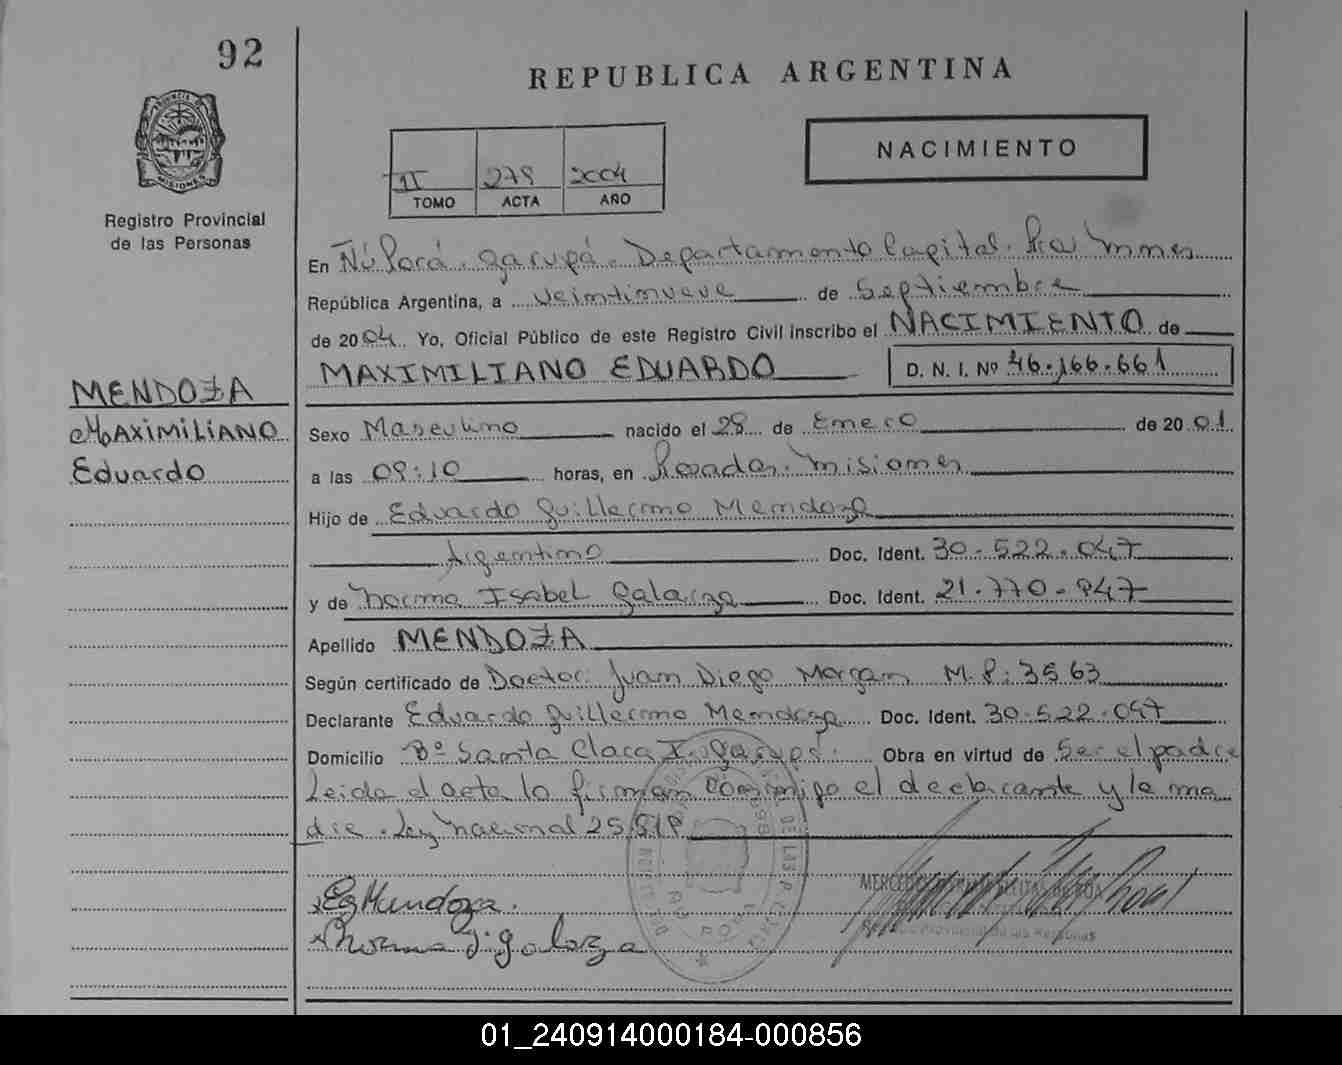 92
REPUBLICA ARGENTINA
PROVINCIA DE
MISIONES
Registro Provincial
de las Personas
NACIMIENTO
II 278 2004
TOMO ACTA AÑO
En Ñú Porá. Garupá. Departamento Capital. Pcia Mnnes
República Argentina, a veintinueve de Septiembre
de 2004. Yo, Oficial Público de este Registro Civil inscribo el NACIMIENTO de
MAXIMILIANO EDUARDO D. N. I. Nº 46.166.661
MENDOZA
MAXIMILIANO
Eduardo
Sexo Masculino nacido el 28 de Enero de 2001
a las 09:10 horas, en Posadas. Misiones
Hijo de Eduardo Guillermo Mendoza
Argentino Doc. Ident. 30.522.047
y de Norma Isabel Galarza Doc. Ident. 21.770.847
Apellido MENDOZA
Según certificado de Doctor: Juan Diego Morgan M.P: 3563
Declarante Eduardo Guillermo Mendoza Doc. Ident. 30.522.047
Domicilio Bº Santa Clara I. Garupá. Obra en virtud de Ser el padre
Leida el acta la firman conmigo el declarante y la ma
dre. Ley Nacional 25.818
EgMendoza.
Norma I. Galarza
01_240914000184-000856